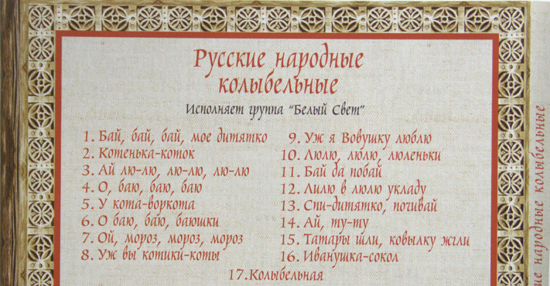 Русские народные
колыбельные
Исполняет группа "Белый Свет"
1. Бай, бай, бай, мое дитятко
2. Котенька-коток
3. Ай лю-лю, лю-лю, лю-лю
4. О, баю, баю, баю
5. У кота-воркота
6. О баю, баю, баюшки
7. Ой, мороз, мороз, мороз
8. Уж вы котики-коты
9. Уж я Вовушку люблю
10. Люлю, люлю, люленьки
11. Бай да побай
12. Лилю в люлю укладу
13. Спи-дитятко, почивай
14. Ай, ту-ту
15. Татары шли, ковылку жгли
16. Иванушка-сокол
17. Колыбельная
народные колыбельные